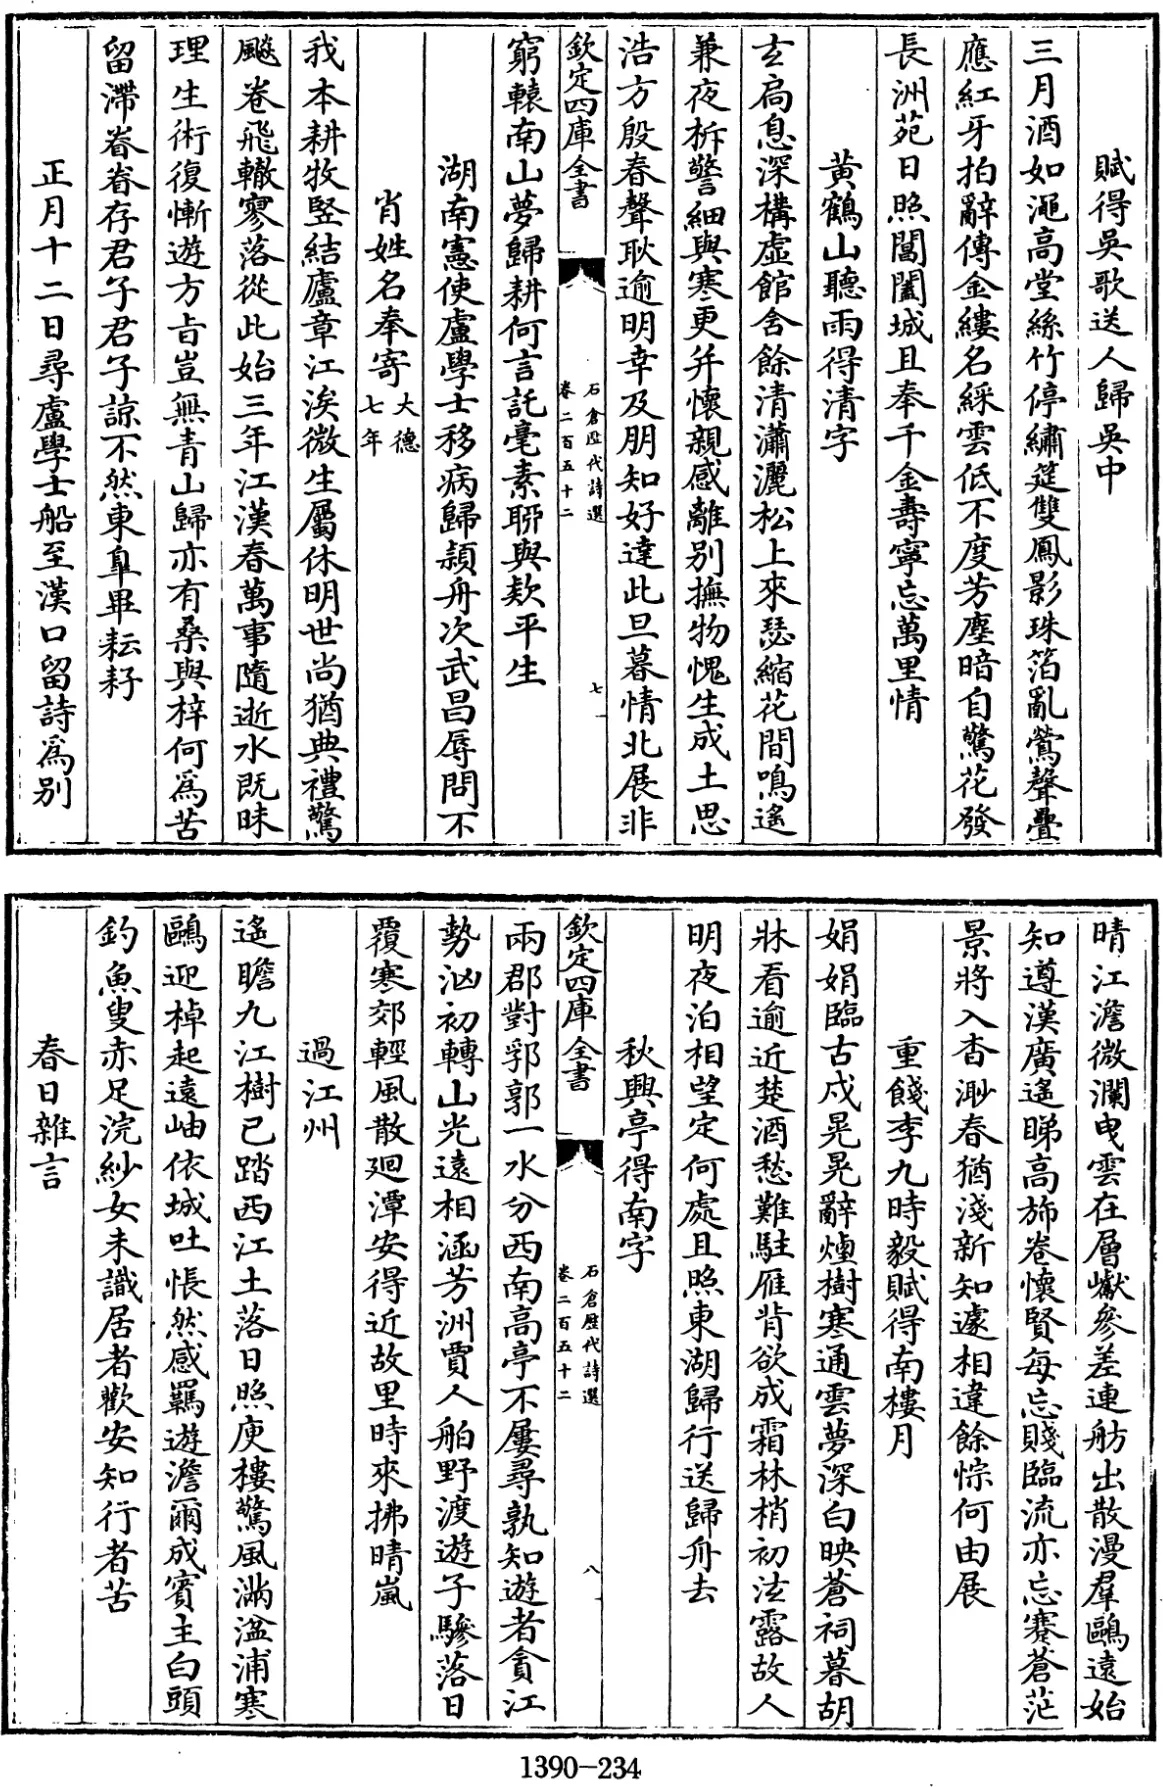 賦得吳歌送人歸吳中
三月酒如澠高堂絲竹停繡筵雙鳳影珠箔亂鶯聲疊
應紅牙拍辭傳金縷名綵雲低不度芳塵暗自驚花發
長洲苑日照闔閭城且奉千金壽寧忘萬里情
黃鶴山聽雨得清字
玄扃息深構虛館舍餘清瀟灑松上來瑟縮花間鳴遙
兼夜柝警細與寒更并懷親感離別撫物愧生成土思
浩方殷春聲耿逾明幸及朋知好達此旦暮情北展非
欽定四庫全書
石倉歷代詩選
卷二百五十二
七
窮轅南山夢歸耕何言託毫素聊與欵平生
湖南憲使盧學士移病歸潁舟次武昌辱問不
肖姓名奉寄大德七年
我本耕牧豎結廬章江涘微生屬休明世尚猶典禮驚
飈卷飛轍寥落從此始三年江漢春萬事隨逝水既昧
理生術復慚遊方旨豈無青山歸亦有桑與梓何為苦
留滯眷眷存君子君子諒不然東皐畢耘耔
正月十二日尋盧學士船至漢口留詩為别
晴江澹微瀾曳雲在層巘參差連舫出散漫羣鷗遠始
知遵漢廣遙睇高斾卷懷賢每忘賤臨流亦忘蹇蒼茫
景將入杳渺春猶淺新知遽相違餘悰何由展
重餞李九時毅賦得南樓月
娟娟臨古戍晃晃辭煙樹寒通雲夢深白映蒼祠暮胡
牀看逾近楚酒愁難駐雁背欲成霜林梢初泫露故人
明夜泊相望定何處且照東湖歸行送歸舟去
秋興亭得南字
欽定四庫全書
石倉歷代詩選
卷二百五十二
八
兩郡對郛郭一水分西南高亭不屢尋孰知遊者貪江
勢汹初轉山光遠相涵芳洲賈人舶野渡遊子驂落日
覆寒郊輕風散廻潭安得近故里時來拂晴嵐
過江州
遙瞻九江樹已踏西江土落日照庾樓驚風滿湓浦寒
鷗迎棹起遠岫依城吐悵然感羈遊澹爾成賓主白頭
釣魚叟赤足浣紗女未識居者歡安知行者苦
春日雜言
1390-234